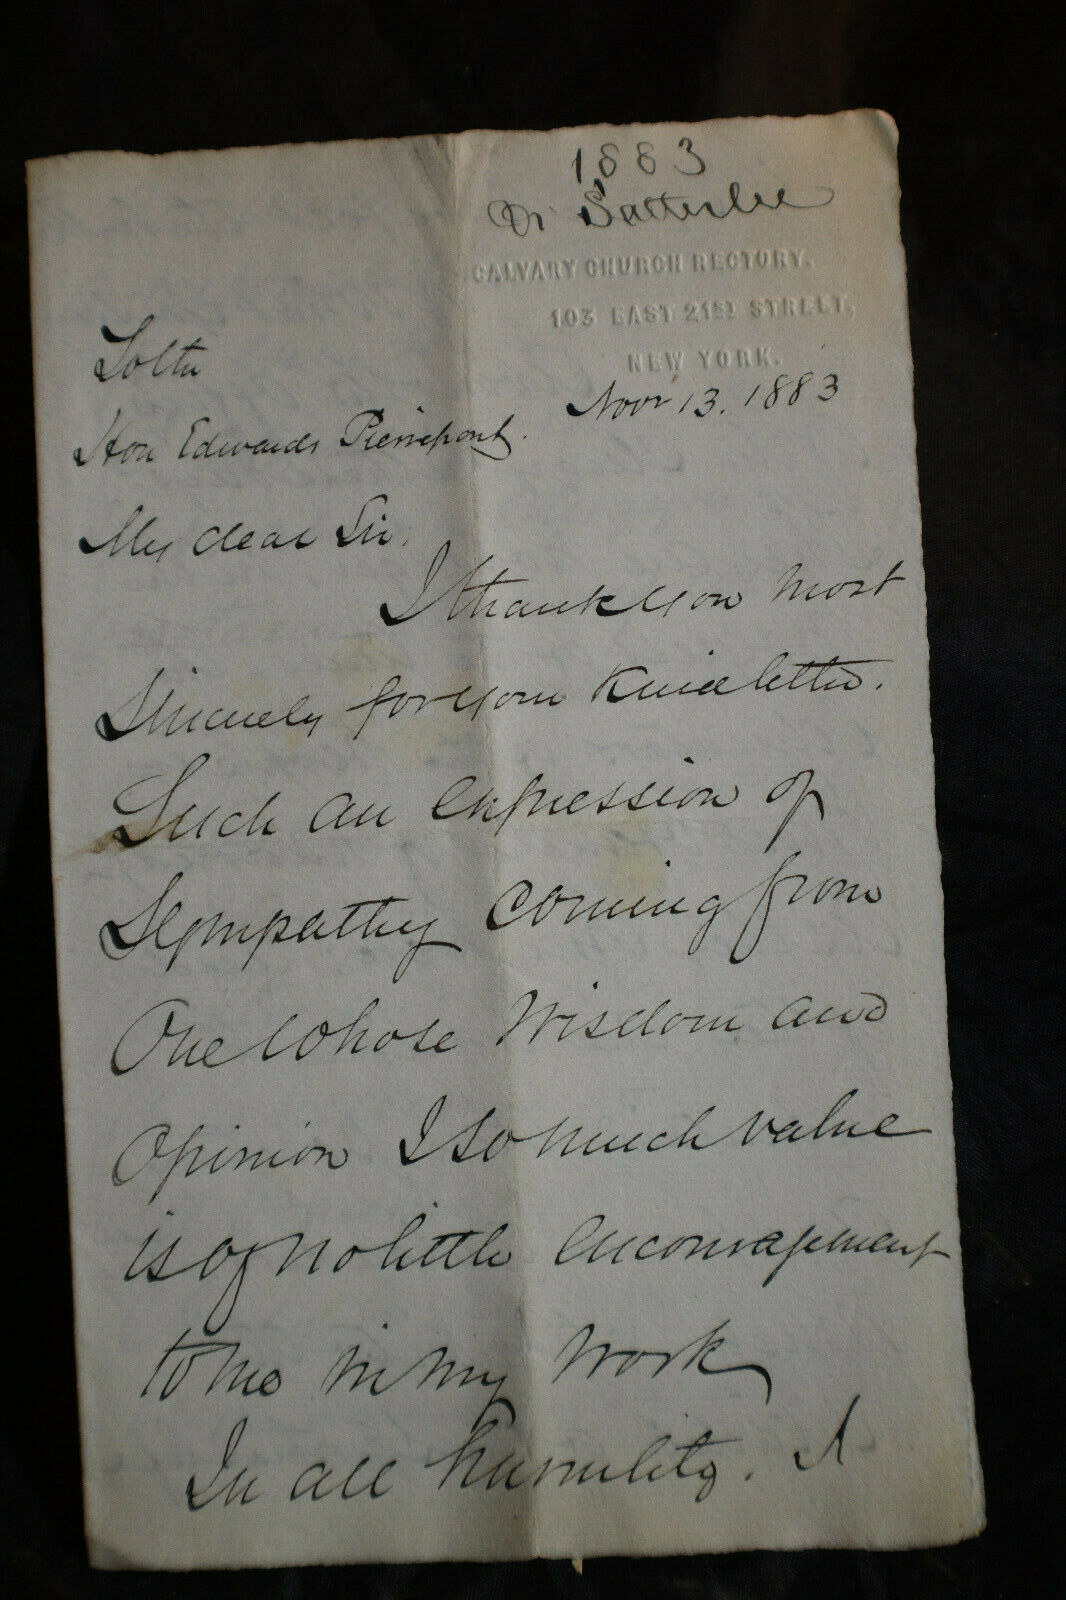 1883
Dr Satterlee
CALVARY CHURCH RECTORY.
103 EAST 21ST STREET,
NEW YORK.
Nov 13. 1883
To the
Hon Edwards Pierrepont.
My dear Sir.
I thank you most
Sincerely for your kind letter.
Such an expression of
Sympathy coming from
One whose wisdom and
opinion I so much value
is of no little encouragement
to me in my work
In all humility. I